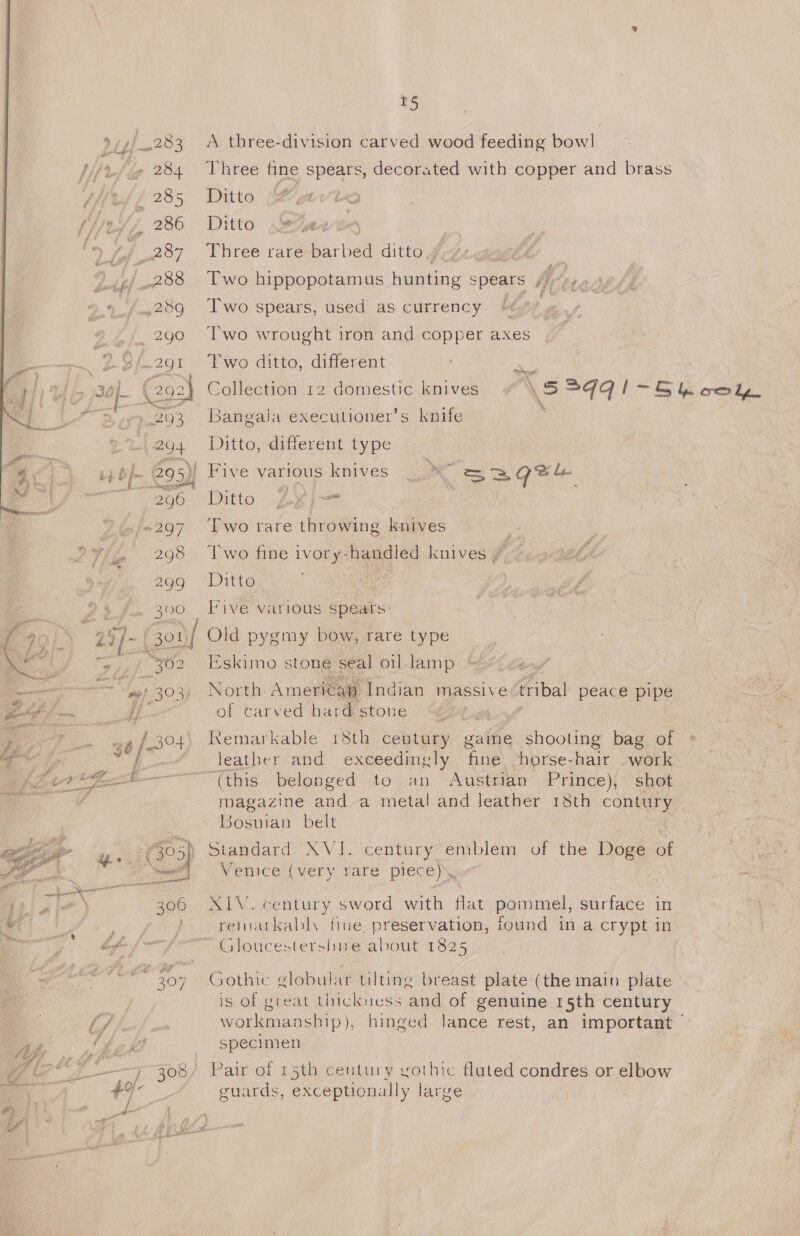 15
283 A three-division carved wood feeding bowl
284 Three fine spears, decorated with copper and brass
285 Ditto
286 Ditto
287 Three rare barbed ditto
288 Two hippopotamus hunting spears
289 Two spears, used as currency
290 Two wrought iron and copper axes
291 Two ditto, different
30/- 292 Collection 12 domestic knives
293 Bangala executioner's knife
294 Ditto, different type
295 Five various knives
296 Ditto
297 Two rare throwing knives
298 Two fine ivory-handled knives
299 Ditto
300 Five various spears
301 Old pygmy bow, rare type
302 Eskimo stone seal oil lamp
303 North American Indian massive tribal peace pipe
of carved hard stone
304 Remarkable 18th century game shooting bag of
leather and exceedingly fine horse-hair work
(this belonged to an Austrian Prince), shot
magazine and a metal and leather 18th contury
Bosnian belt
305 Standard XVI. century emblem of the Doge of
Venice (very rare piece)
306 XIV. century sword with flat pommel, surface in
remarkably fine preservation, found in a crypt in
Gloucestershire about 1825
307 Gothic globular tilting breast plate (the main plate
is of great thickness and of genuine 15th century
workmanship), hinged lance rest, an important
specimen
308 Pair of 15th century gothic fluted condres or elbow
40/- guards, exceptionally large